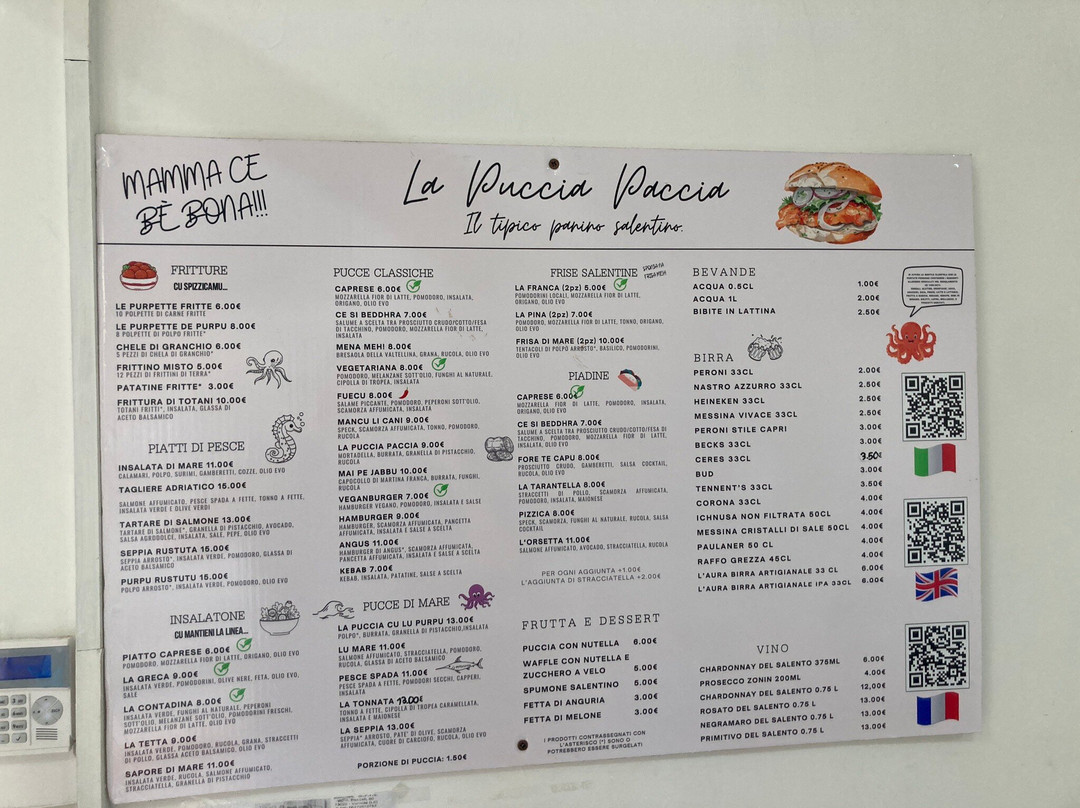 MAMMA CE
BÈ BONA!!!
La Puccia Paccia
Il tipico panino salentino.
FRITTURE
CU SPIZZICAMU...
LE PURPETTE FRITTE 6.00€
10 POLPETTE DI CARNE FRITTE
LE PURPETTE DE PURPU 8.00€
8 POLPETTE DI POLPO FRITTE*
CHELE DI GRANCHIO 6.00€
5 PEZZI DI CHELA DI GRANCHIO*
FRITTINO MISTO 5.00€
12 PEZZI DI FRITTINI DI TERRA*
PATATINE FRITTE* 3.00€
FRITTURA DI TOTANI 10.00€
TOTANI FRITTI*, INSALATA, GLASSA DI
ACETO BALSAMICO
PIATTI DI PESCE
INSALATA DI MARE 11.00€
CALAMARI, POLPO, SURIMI, GAMBERETTI, COZZE, OLIO EVO
TAGLIERE ADRIATICO 15.00€
SALMONE AFFUMICATO, PESCE SPADA A FETTE, TONNO A FETTE,
INSALATA VERDE E OLIVE VERDI
TARTARE DI SALMONE 13.00€
TARTARE DI SALMONE*, GRANELLA DI PISTACCHIO, AVOCADO,
SALSA AGRODOLCE, INSALATA, SALE, PEPE, OLIO EVO
SEPPIA RUSTUTA 15.00€
SEPPIA ARROSTO*, INSALATA VERDE, POMODORO, GLASSA DI
ACETO BALSAMICO
PURPU RUSTUTU 15.00€
POLPO ARROSTO*, INSALATA VERDE, POMODORO, OLIO EVO
INSALATONE
CU MANTIENI LA LINEA...
PIATTO CAPRESE 6.00€
POMODORO, MOZZARELLA FIOR DI LATTE, ORIGANO, OLIO EVO
LA GRECA 9.00€
INSALATA VERDE, POMODORINI, OLIVE NERE, FETA, OLIO EVO,
SALE
LA CONTADINA 8.00€
INSALATA VERDE, FUNGHI AL NATURALE, PEPERONI
SOTT'OLIO, MELANZANE SOTT'OLIO, POMODORINI FRESCHI,
MOZZARELLA FIOR DI LATTE, OLIO EVO
LA TETTA 9.00€
INSALATA VERDE, POMODORO, RUCOLA, GRANA, STRACCETTI
DI POLLO, GLASSA ACETO BALSAMICO, OLIO EVO
SAPORE DI MARE 11.00€
INSALATA VERDE, RUCOLA, SALMONE AFFUMICATO,
STRACCIATELLA, GRANELLA DI PISTACCHIO
PUCCE CLASSICHE
CAPRESE 6.00€
MOZZARELLA FIOR DI LATTE, POMODORO, INSALATA,
ORIGANO, OLIO EVO
CE SI BEDDHRA 7.00€
SALUME A SCELTA TRA PROSCIUTTO CRUDO/COTTO/FESA
DI TACCHINO, POMODORO, MOZZARELLA FIOR DI LATTE,
INSALATA
MENA MEH! 8.00€
BRESAOLA DELLA VALTELLINA, GRANA, RUCOLA, OLIO EVO
VEGETARIANA 8.00€
POMODORO, MELANZANE SOTT'OLIO, FUNGHI AL NATURALE,
CIPOLLA DI TROPEA, INSALATA
FUECU 8.00€
SALAME PICCANTE, POMODORO, PEPERONI SOTT'OLIO,
SCAMORZA AFFUMICATA, INSALATA
MANCU LI CANI 9.00€
SPECK, SCAMORZA AFFUMICATA, TONNO, POMODORO,
RUCOLA
LA PUCCIA PACCIA 9.00€
MORTADELLA, BURRATA, GRANELLA DI PISTACCHIO,
RUCOLA
MAI PE JABBU 10.00€
CAPOCOLLO DI MARTINA FRANCA, BURRATA, FUNGHI,
RUCOLA
VEGANBURGER 7.00€
HAMBURGER VEGANO, POMODORO, INSALATA E SALSE
HAMBURGER 9.00€
HAMBURGER, SCAMORZA AFFUMICATA, PANCETTA
AFFUMICATA, INSALATA E SALSE A SCELTA
ANGUS 11.00€
HAMBURGER DI ANGUS*, SCAMORZA AFFUMICATA,
PANCETTA AFFUMICATA, INSALATA E SALSE A SCELTA
KEBAB 7.00€
KEBAB, INSALATA, PATATINE, SALSE A SCELTA
PUCCE DI MARE
LA PUCCIA CU LU PURPU 13.00€
POLPO*, BURRATA, GRANELLA DI PISTACCHIO,INSALATA
LU MARE 11.00€
SALMONE AFFUMICATO, STRACCIATELLA, POMODORO,
RUCOLA, GLASSA DI ACETO BALSAMICO
PESCE SPADA 11.00€
PESCE SPADA A FETTE, POMODORI SECCHI, CAPPERI,
INSALATA
LA TONNATA
TONNO A FETTE, CIPOLLA DI TROPEA CARAMELLATA,
INSALATA E MAIONESE
LA SEPPIA 13.00€
SEPPIA* ARROSTO, PATE' DI OLIVE, SCAMORZA
AFFUMICATA, CUORE DI CARCIOFO, RUCOLA, OLIO EVO
PORZIONE DI PUCCIA: 1.50€
FRISE SALENTINE
LA FRANCA (2pz) 5.00€
POMODORINI LOCALI, MOZZARELLA FIOR DI LATTE,
ORIGANO, OLIO EVO
LA PINA (2pz) 7.00€
POMODORO, MOZZARELLA FIOR DI LATTE, TONNO, ORIGANO,
OLIO EVO
FRISA DI MARE (2pz) 10.00€
TENTACOLI DI POLPO ARROSTO*, BASILICO, POMODORINI,
OLIO EVO
PIADINE
CAPRESE 6.00€
MOZZARELLA FIOR DI LATTE, POMODORO, INSALATA,
ORIGANO, OLIO EVO
CE SI BEDDHRA 7.00€
SALUME A SCELTA TRA PROSCIUTTO CRUDO/COTTO/FESA DI
TACCHINO, POMODORO, MOZZARELLA FIOR DI LATTE,
INSALATA, OLIO EVO
FORE TE CAPU 8.00€
PROSCIUTTO CRUDO, GAMBERETTI, SALSA COCKTAIL,
RUCOLA, OLIO EVO
LA TARANTELLA 8.00€
STRACCETTI DI POLLO, SCAMORZA AFFUMICATA,
POMODORO, INSALATA, MAIONESE
PIZZICA 8.00€
SPECK, SCAMORZA, FUNGHI AL NATURALE, RUCOLA, SALSA
COCKTAIL
L'ORSETTA 11.00€
SALMONE AFFUMICATO, AVOCADO, STRACCIATELLA, RUCOLA
PER OGNI AGGIUNTA +1.00€
L'AGGIUNTA DI STRACCIATELLA +2.00€
FRUTTA E DESSERT
PUCCIA CON NUTELLA 6.00€
WAFFLE CON NUTELLA E
ZUCCHERO A VELO 5.00€
SPUMONE SALENTINO 5.00€
FETTA DI ANGURIA 3.00€
FETTA DI MELONE 3.00€
I PRODOTTI CONTRASSEGNATI CON
L'ASTERISCO (*) SONO O
POTREBBERO ESSERE SURGELATI
BEVANDE
ACQUA 0.5CL 1.00€
ACQUA 1L 2.00€
BIBITE IN LATTINA 2.50€
BIRRA
PERONI 33CL 2.00€
NASTRO AZZURRO 33CL 2.50€
HEINEKEN 33CL 2.50€
MESSINA VIVACE 33CL 2.50€
PERONI STILE CAPRI 3.00€
BECKS 33CL 3.00€
CERES 33CL 3.50€
BUD 3.00€
TENNENT'S 33CL 3.50€
CORONA 33CL 4.00€
ICHNUSA NON FILTRATA 50CL 4.00€
MESSINA CRISTALLI DI SALE 50CL 4.00€
PAULANER 50 CL 4.00€
RAFFO GREZZA 45CL 4.00€
L'AURA BIRRA ARTIGIANALE 33 CL 6.00€
L'AURA BIRRA ARTIGIANALE IPA 33CL 6.00€
VINO
CHARDONNAY DEL SALENTO 375ML 6.00€
PROSECCO ZONIN 200ML 4.00€
CHARDONNAY DEL SALENTO 0.75 L 12,00€
ROSATO DEL SALENTO 0.75 L 13.00€
NEGRAMARO DEL SALENTO 0.75 L 13.00€
PRIMITIVO DEL SALENTO 0.75 L 13.00€